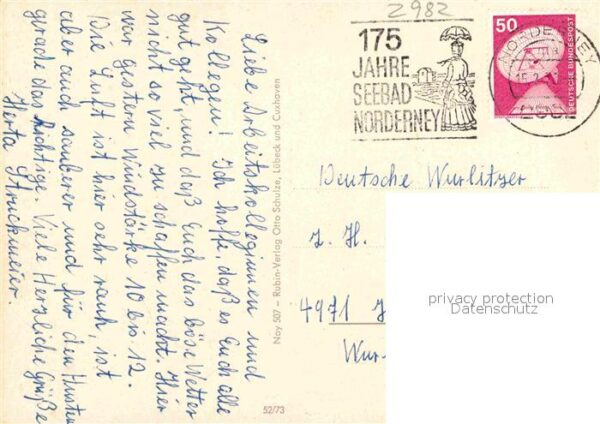 2982
175
JAHRE
SEEBAD
NORDERNEY
50
DEUTSCHE BUNDESPOST
NORDERNEY
Liebe Arbeitskolleginnen und
Kollegen! Ich hoffe, daß es Euch alle
gut geht, und daß Euch das böse Wetter
nicht so viel zu schaffen macht. Hier
war gestern Windstärke 10 bis 12.
Die Luft ist hier sehr rauh, ist
aber auch sauberer und für den Husten
gerade das Richtige. Viele Herzliche Grüße
Herta Struckmeier.
Noy 507 – Rubin-Verlag Otto Schulze, Lübeck und Cuxhaven
52/73
Deutsche Wurlitzer
z. H.
4971
Wur-
privacy protection
Datenschutz